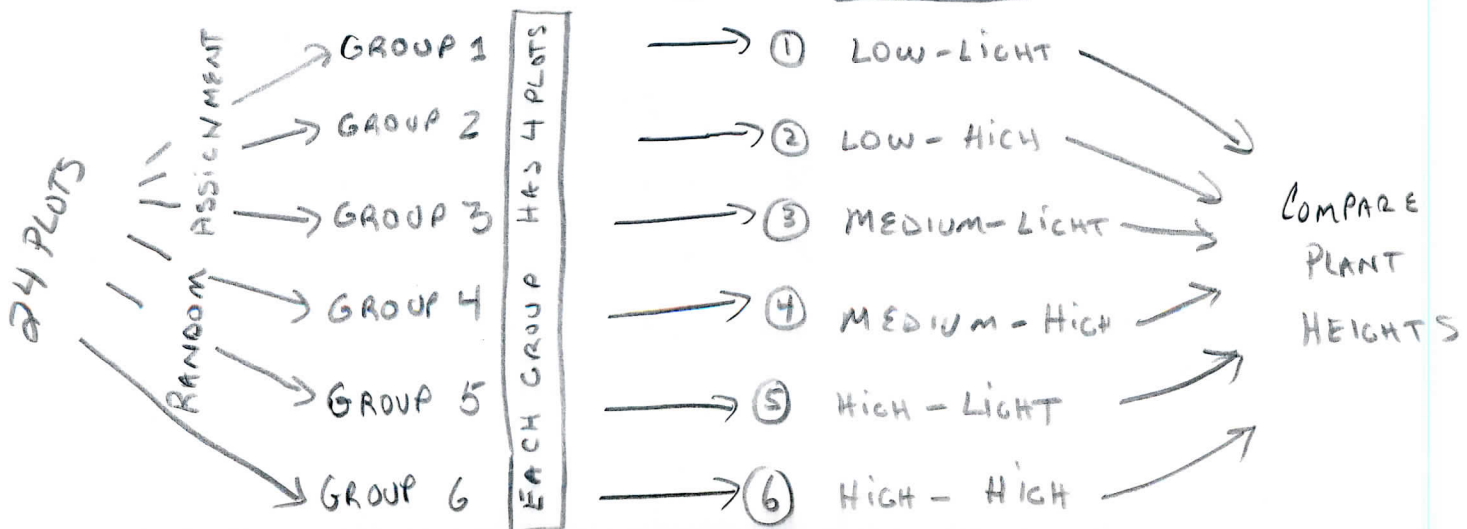 24 PLOTS
RANDOM ASSIGNMENT
GROUP 1
GROUP 2
GROUP 3
GROUP 4
GROUP 5
GROUP 6
EACH GROUP HAS 4 PLOTS
① LOW-LiGHT
② LOW-HiGH
③ MEDIUM-LiGHT
④ MEDIUM-HiGH
⑤ HiGH-LiGHT
⑥ HiGH-HiGH
COMPARE
PLANT
HEIGHTS